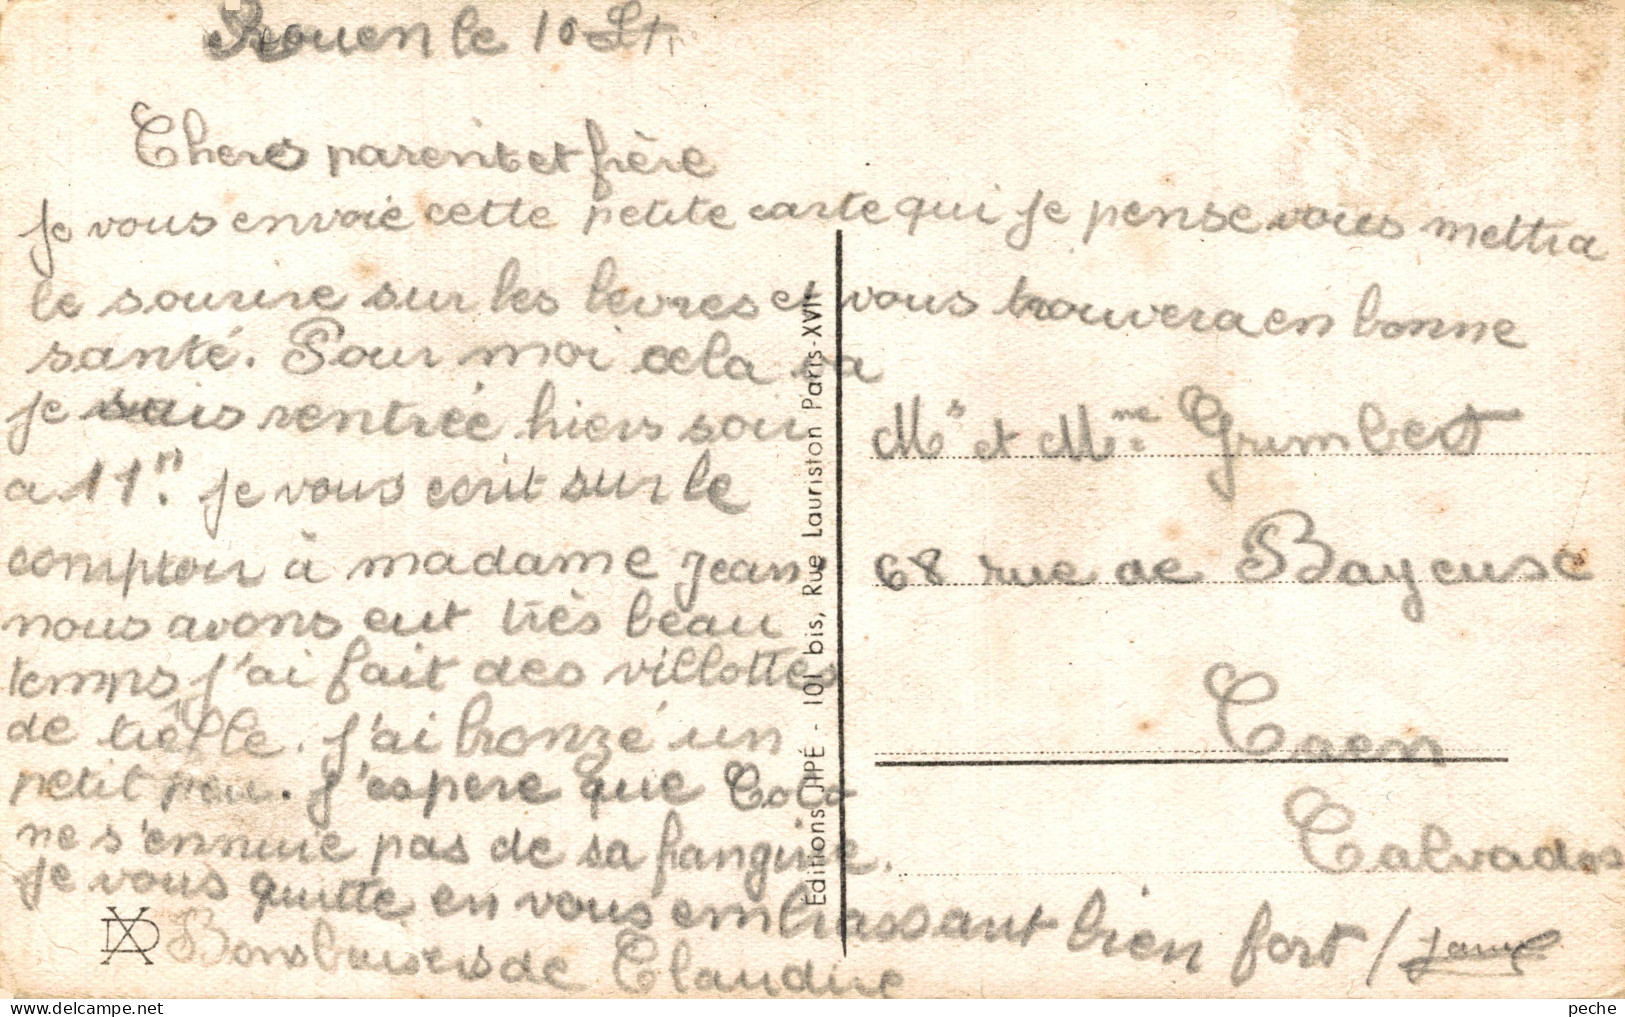 Rouen le 10
Chers parent et frère
je vous envoie cette petite carte qui je pense vous mettra
le sourire sur les levres et vous trouvera en bonne
santé. Pour moi cela va
je suis rentrée hiers soir
a 11h. je vous ecrit sur le
comptoir à madame Jean
nous avons eut très beau
temps j'ai fait des villottes
de
j'ai bronzé un
petit peu. j'espere que Coco
ne s'ennuie pas de sa frangine.
je vous quitte en vous embrassant bien fort /
Bons baisers de Claudine
Mr et Mme Grimbert
68 rue de Bayeuse
Caen
Calvados
Éditions JIPÉ - 101 bis, Rue Lauriston Paris-XVIe
peche